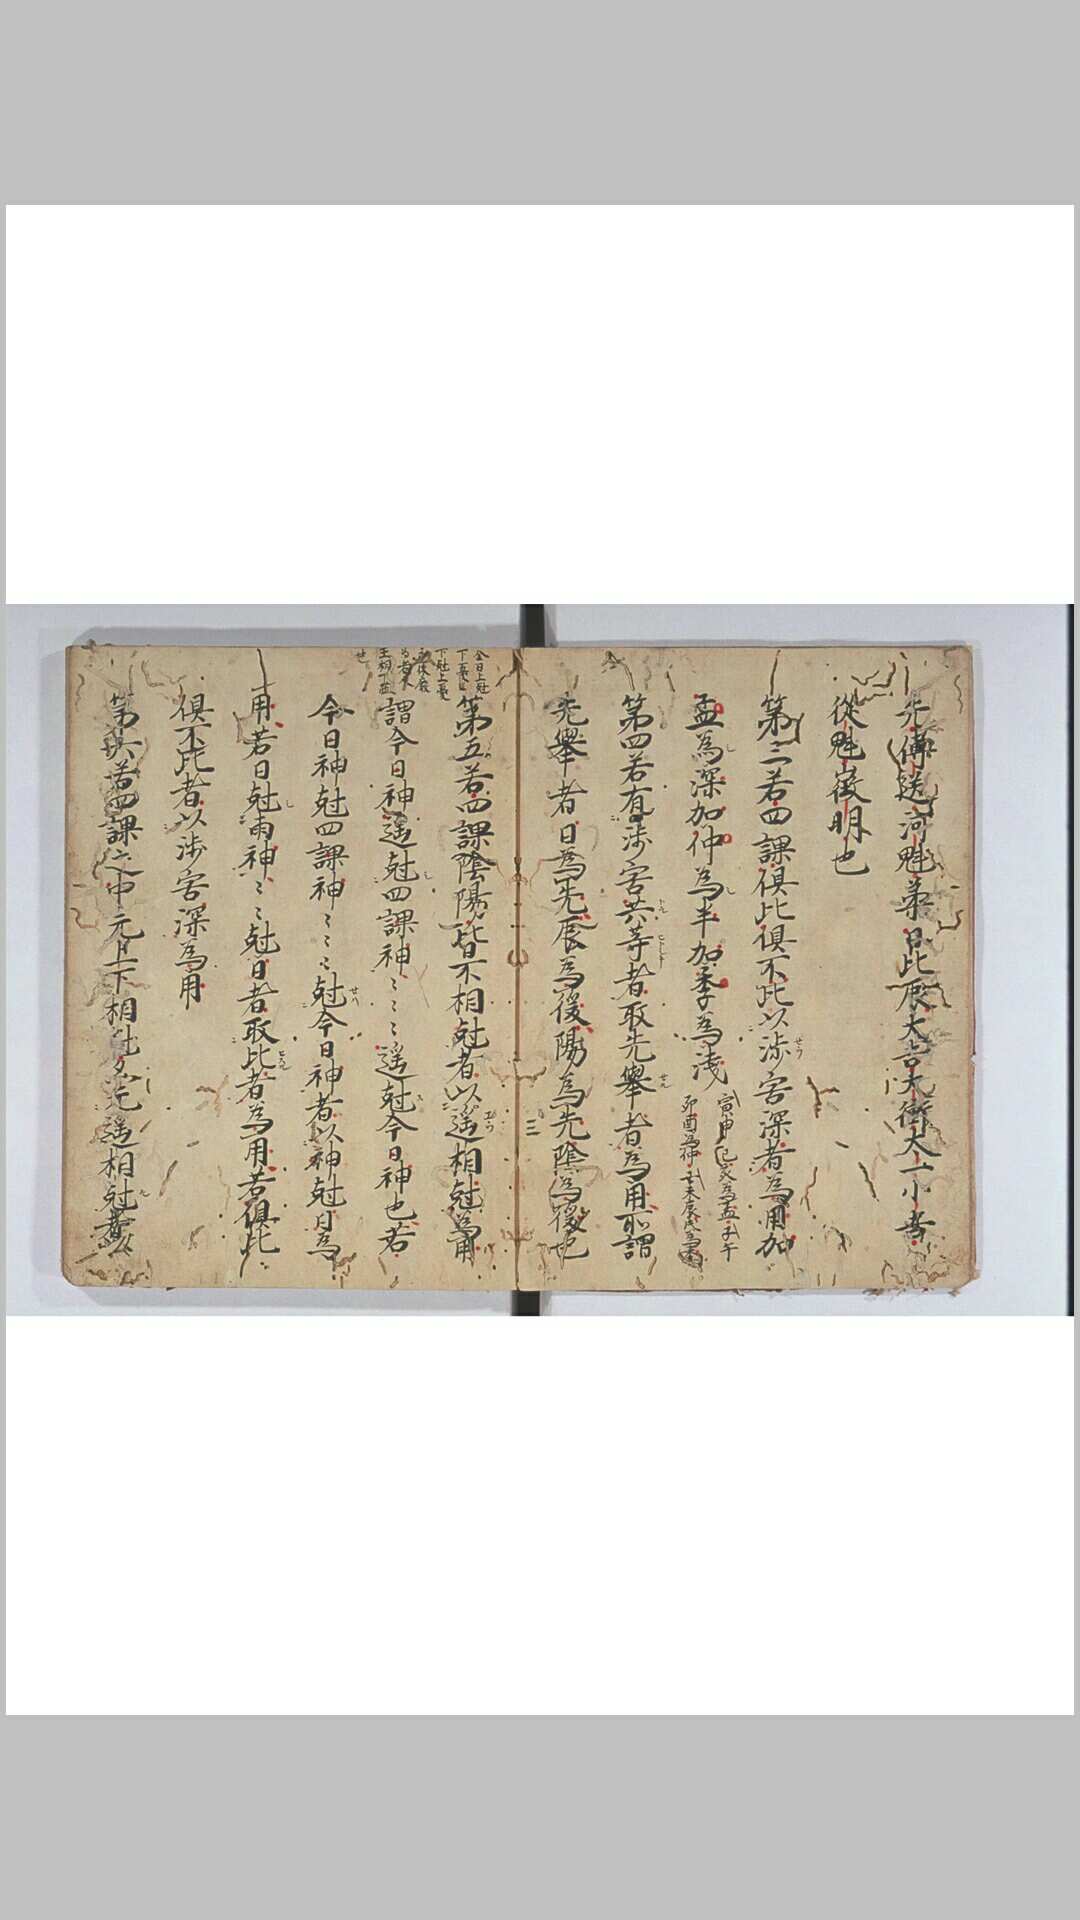 先傳送河魁第吕比辰大吉大衝大一小吉
從魁徴明也
第三若四課俱比俱不比以渉害深者為用加
孟為深加仲為半加季為浅
寅申巳亥為孟子午
卯酉為仲丑未辰戌為季
第四若有渉害共等者取先舉者為用所謂
先舉者日為先辰為後陽為先陰為後也
三
今日上尅
下憂
下尅上憂
王相
第五若四課陰陽皆不相尅者以遥相尅為用
謂今日神遥尅四課神〻〻〻遥尅今日神也若
今日神尅四課神〻〻〻尅今日神者以神尅日為
用若日尅兩神〻〻尅日者取比者為用若俱比
俱不比者以渉害深為用
第六若四課之中元上下相尅又元遥相尅者